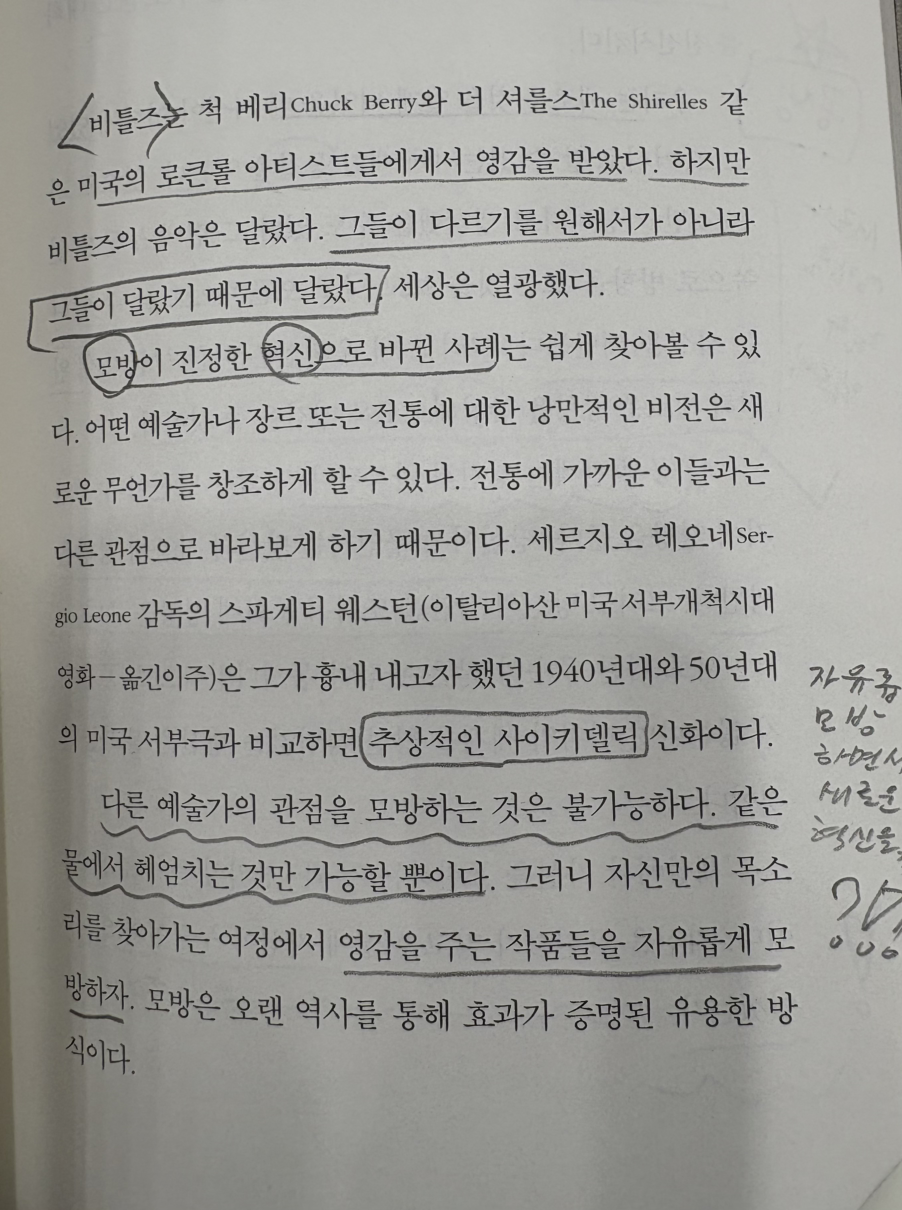 비틀즈는 척 베리Chuck Berry와 더 셔를스The Shirelles 같
은 미국의 로큰롤 아티스트들에게서 영감을 받았다. 하지만
비틀즈의 음악은 달랐다. 그들이 다르기를 원해서가 아니라
그들이 달랐기 때문에 달랐다. 세상은 열광했다.
모방이 진정한 혁신으로 바뀐 사례는 쉽게 찾아볼 수 있
다. 어떤 예술가나 장르 또는 전통에 대한 낭만적인 비전은 새
로운 무언가를 창조하게 할 수 있다. 전통에 가까운 이들과는
다른 관점으로 바라보게 하기 때문이다. 세르지오 레오네Ser-
gio Leone 감독의 스파게티 웨스턴(이탈리아산 미국 서부개척시대
영화–옮긴이주)은 그가 흉내 내고자 했던 1940년대와 50년대
의 미국 서부극과 비교하면 추상적인 사이키델릭 신화이다.
다른 예술가의 관점을 모방하는 것은 불가능하다. 같은
물에서 헤엄치는 것만 가능할 뿐이다. 그러니 자신만의 목소
리를 찾아가는 여정에서 영감을 주는 작품들을 자유롭게 모
방하자. 모방은 오랜 역사를 통해 효과가 증명된 유용한 방
식이다.
자유롭
모방
하면서
새로운
혁신을